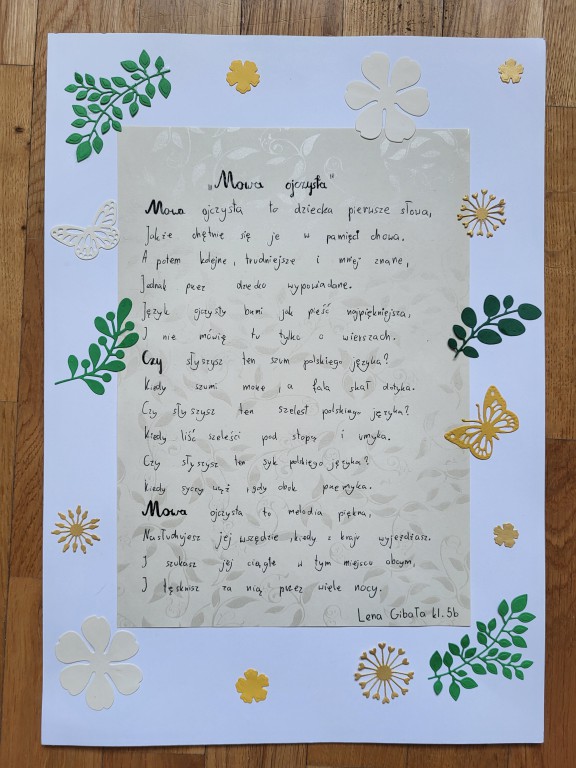 „Mowa ojczysta"
Mowa ojczysta to dziecka pierwsze słowa,
Jakże chętnie się je w pamięci chowa.
A potem kolejne, trudniejsze i mniej znane,
Jednak przez dziecko wypowiadane.
Język ojczysty brzmi jak pieść najpiękniejsza,
I nie mówię tu tylko o wierszach.
Czy słyszysz ten szum polskiego języka?
Kiedy szumi morze, a fala skał dotyka.
Czy słyszysz ten szelest polskiego języka?
Kiedy liść szeleści pod stopą i umyka.
Czy słyszysz ten syk polskiego języka?
Kiedy syczy wąż, gdy obok przemyka.
Mowa ojczysta to melodia piękna,
Nasłuchujesz jej wszędzie, kiedy z kraju wyjeżdżasz.
I szukasz jej ciągle w tym miejscu obcym,
I tęsknisz za nią przez wiele nocy.
Lena Gibała kl. 5b